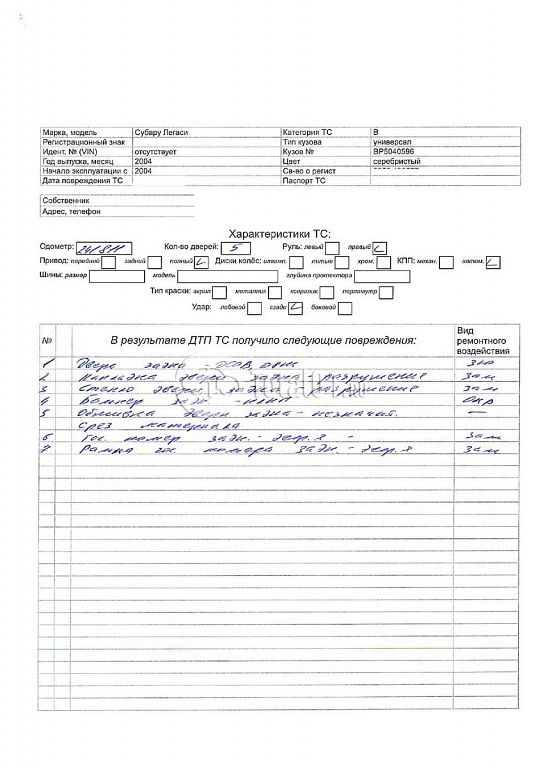 Марка, модель Субару Легаси Категория ТС В
Регистрационный знак Тип кузова универсал
Идент. № (VIN) отсутствует Кузов № BP5040596
Год выпуска, месяц 2004 Цвет серебристый
Начало эксплуатации с 2004 Св-во о регист
Дата повреждения ТС Паспорт ТС
Собственник
Адрес, телефон
Характеристики ТС:
Одометр: Кол-во дверей: 5 Руль: левый правый
Привод: передний задний полный Диски колёс: штамп. литые хром. КПП: механ. автом.
Шины: размер модель глубина протектора
Тип краски: акрил металлик ксералик перламутр
Удар: лобовой сзади боковой
№ В результате ДТП ТС получило следующие повреждения: Вид ремонтного воздействия
1 Дверь задка
2 Накладка двери задка - разрушение зам
3 Стекло двери задка разрушение зам
4 Бампер задн. окр
5 Обшивка двери задка - незначит. —
срез материала
6 Гос. номер задн. - деф-я - зам
7 Рамка гос. номера задн. - деф-я зам